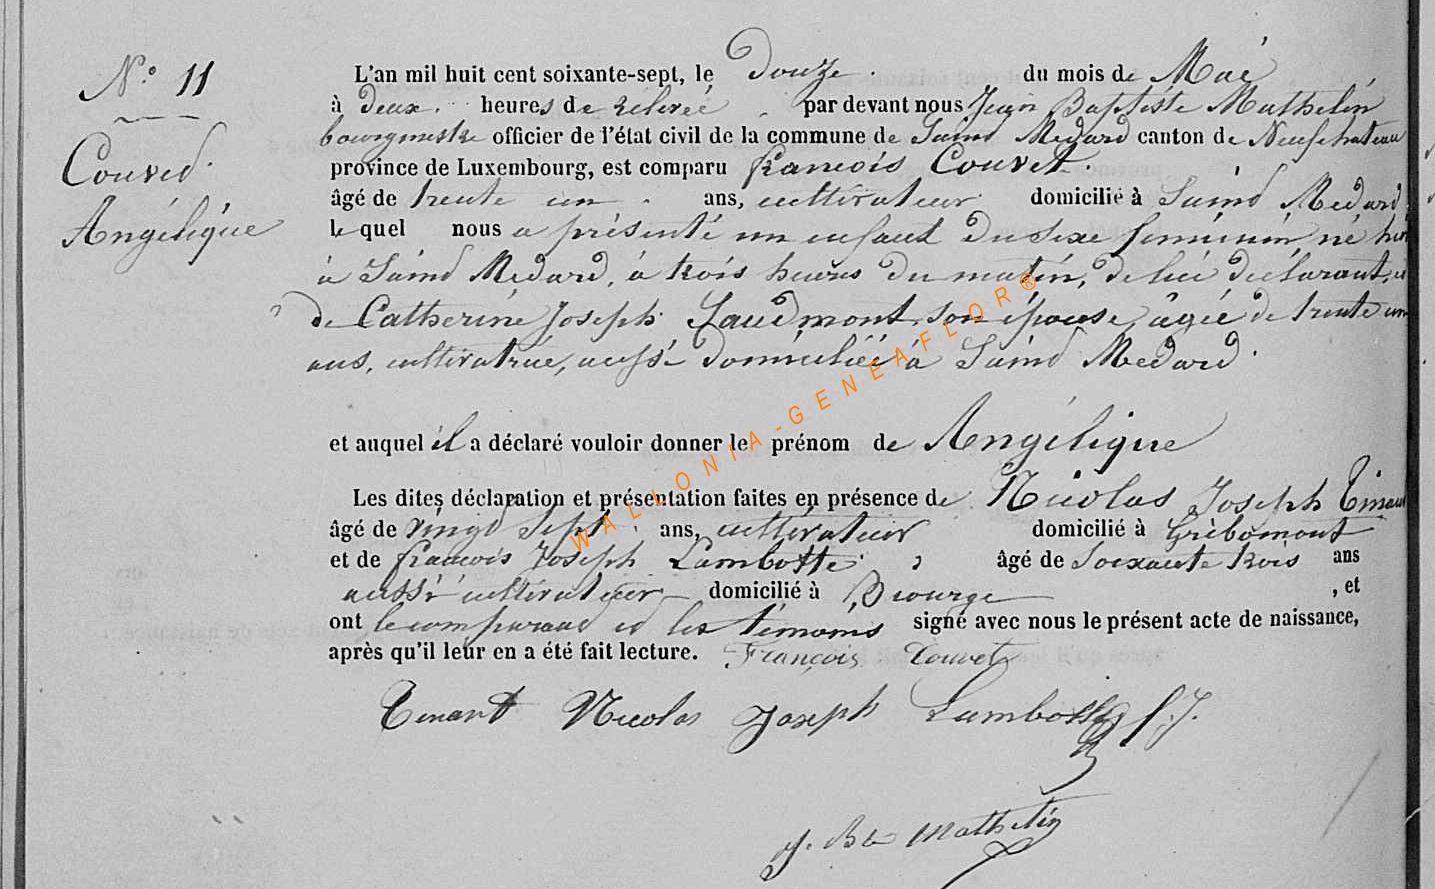 N.° 11
Couvet
Angélique
L'an mil huit cent soixante-sept, le Douze du mois de Mai
à deux heures de relevée par devant nous Jean Baptiste Mathelin
bourgmestre officier de l'état civil de la commune de Saint Medard canton de Neufchateau
province de Luxembourg, est comparu francois Couvet
âgé de trente un ans, cultivateur domicilié à Saint Medard
lequel nous a présenté un enfant du sexe féminin né hier
à Saint Medard, à trois heures du matin, de lui déclarant, et
de Catherine Joseph son épouse, âgée de trente un
ans, cultivatrice, aussi domiciliée à Saint Medard.
et auquel il a déclaré vouloir donner le prénom de Angélique
Les dites déclaration et présentation faites en présence de Nicolas Joseph Tinant
âgé de vingt sept ans, cultivateur domicilié à Gribomont
et de francois Joseph Lambotte âgé de Soixante trois ans
aussi cultivateur domicilié à Biourge , et
ont le comparant et les témoins signé avec nous le présent acte de naissance,
après qu'il leur en a été fait lecture. François Couvet
Tinant Nicolas Joseph Lambotte f. J.
J. Bte Mathelin
WALLONIA-GENEAFLOR®